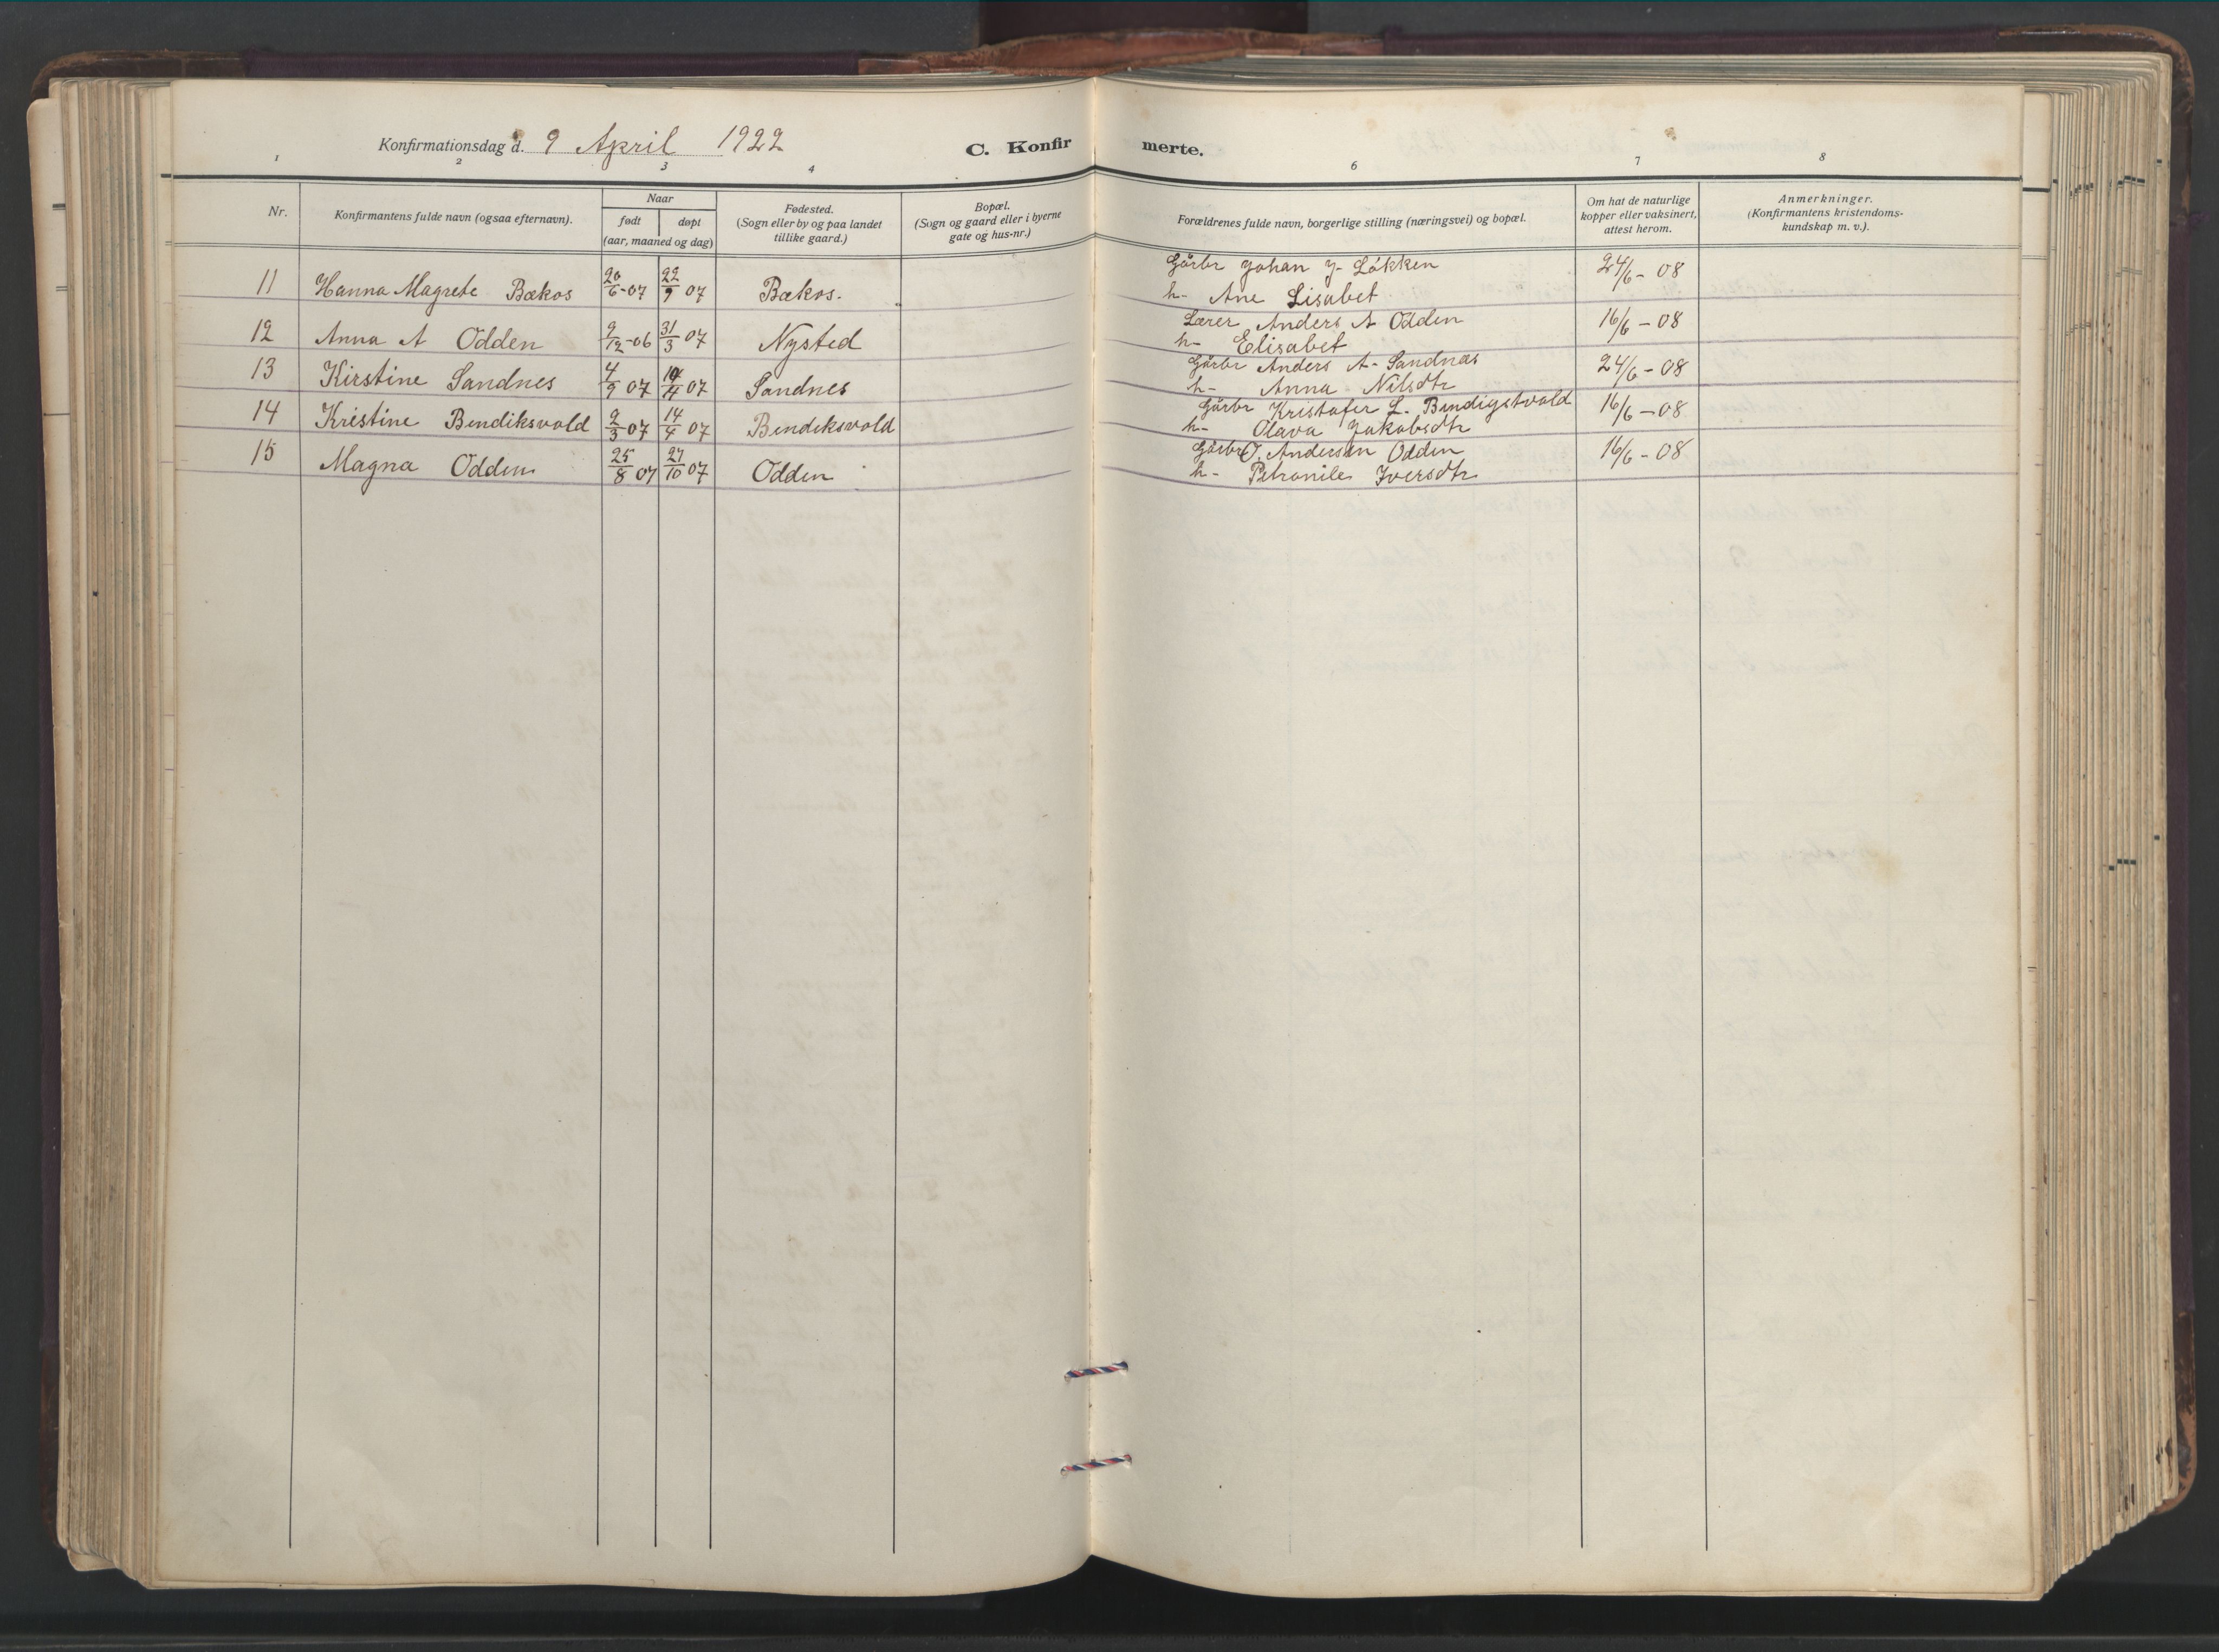 Konfirmationsdag d. 9 April 1922
C. Konfirmerte.
1 2 3 4 6 7 8
Nr.
Konfirmantens fulde navn (ogsaa efternavn).
Naar
født døpt
(aar, maaned og dag)
Fødested.
(Sogn eller by og paa landet
tillike gaard.)
Bopæl.
(Sogn og gaard eller i byerne
gate og hus-nr.)
Forældrenes fulde navn, borgerlige stilling (næringsvei) og bopæl.
Om hat de naturlige
kopper eller vaksinert,
attest herom.
Anmerkninger.
(Konfirmantens kristendoms-
kundskap m. v.).
11 Hanna Magrete Bækos 20/6-07 22/9 07 Bækos. Gårbr Johan J- Løkken 24/6- 08
h- Ane Lisabet
12 Anna A Odden 9/12-06 31/3 07 Nysted Lærer Anders A Odden 16/6 - 08
h- Elisabet
13 Kirstine Sandnes 4/9 07 07 Sandnes Gårbr Anders A- Sandnæs 24/6 - 08
h- Anna Nilsdtr
14 Kristine Bendiksvold 2/3 07 14/4 07 Bendeksvold Gårbr Kristofer L. Bendigstvold 16/6 - 08
h- Olava Jakobsdtr
15 Magna Odden 25/8 07 27/10 07 Odden Gårbr O. Andersen Odden 16/6 - 08
h- Petronile Iversdtr